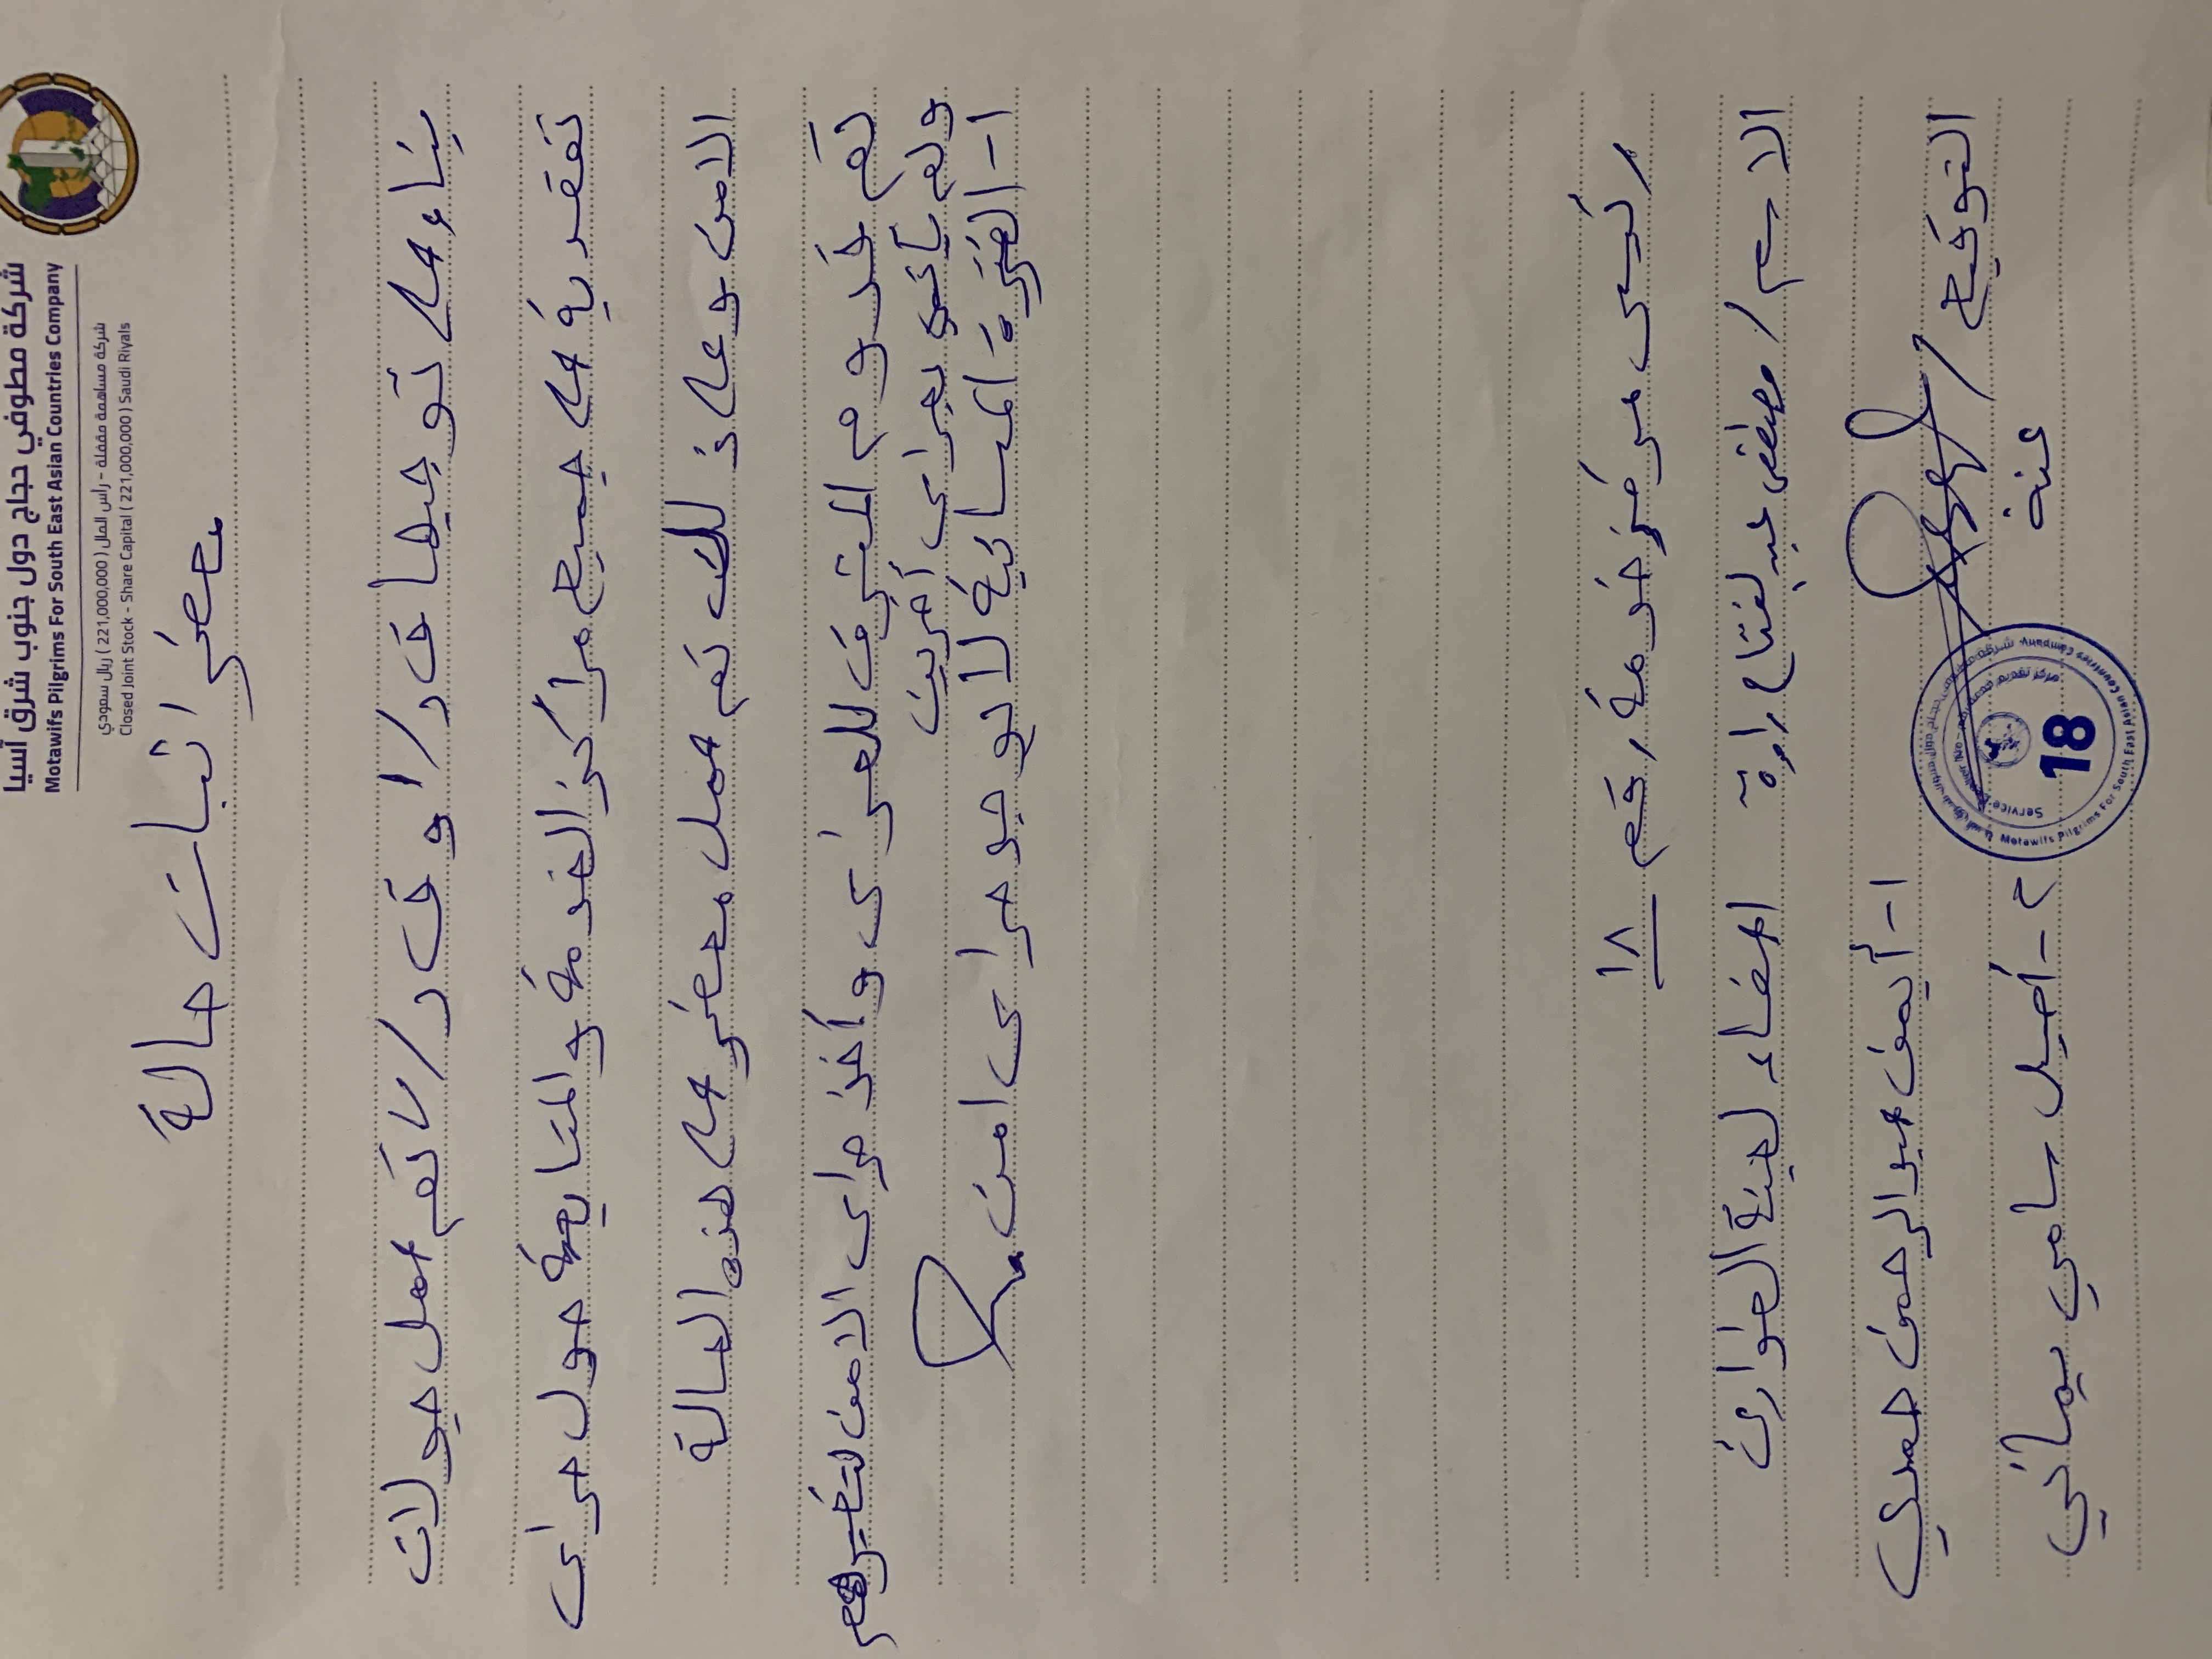 شركة مطوفي حجاج دول جنوب شرق آسيا
Motawifs Pilgrims For South East Asian Countries Company
شركة مساهمة مقفلة - رأس المال ( 221,000,000 ) ريال سعودي
Closed Joint Stock - Share Capital ( 221,000,000 ) Saudi Riyals
محضر اثبات حالة
بناء على توجيهات ق د/١ و ق د/٧ تم عمل جولات
تفقدية على جميع مراكز الخدمة والمتابعة حول حراس
الامن وعلى ذلك تم عمل محضر على هذه الحالة
تم قدوم المشرف للحراس وأخذ حراس الامن لتغيرهم
ولم يأتي بحراس أخرين
١- الفترة المسائية لا يوجد حراس امن
رئيس مركز خدمة رقم ١٨
الاسم / مصطفى عبدالفتاح راوة اعضاء لجنة الطوارئ
١- أيمن عبدالرحمن حمدي
التوقيع /
عنه
٢- أصيل سامي يماني
Service Center No
18
Motawifs Pilgrims For South East Asian Countries Company